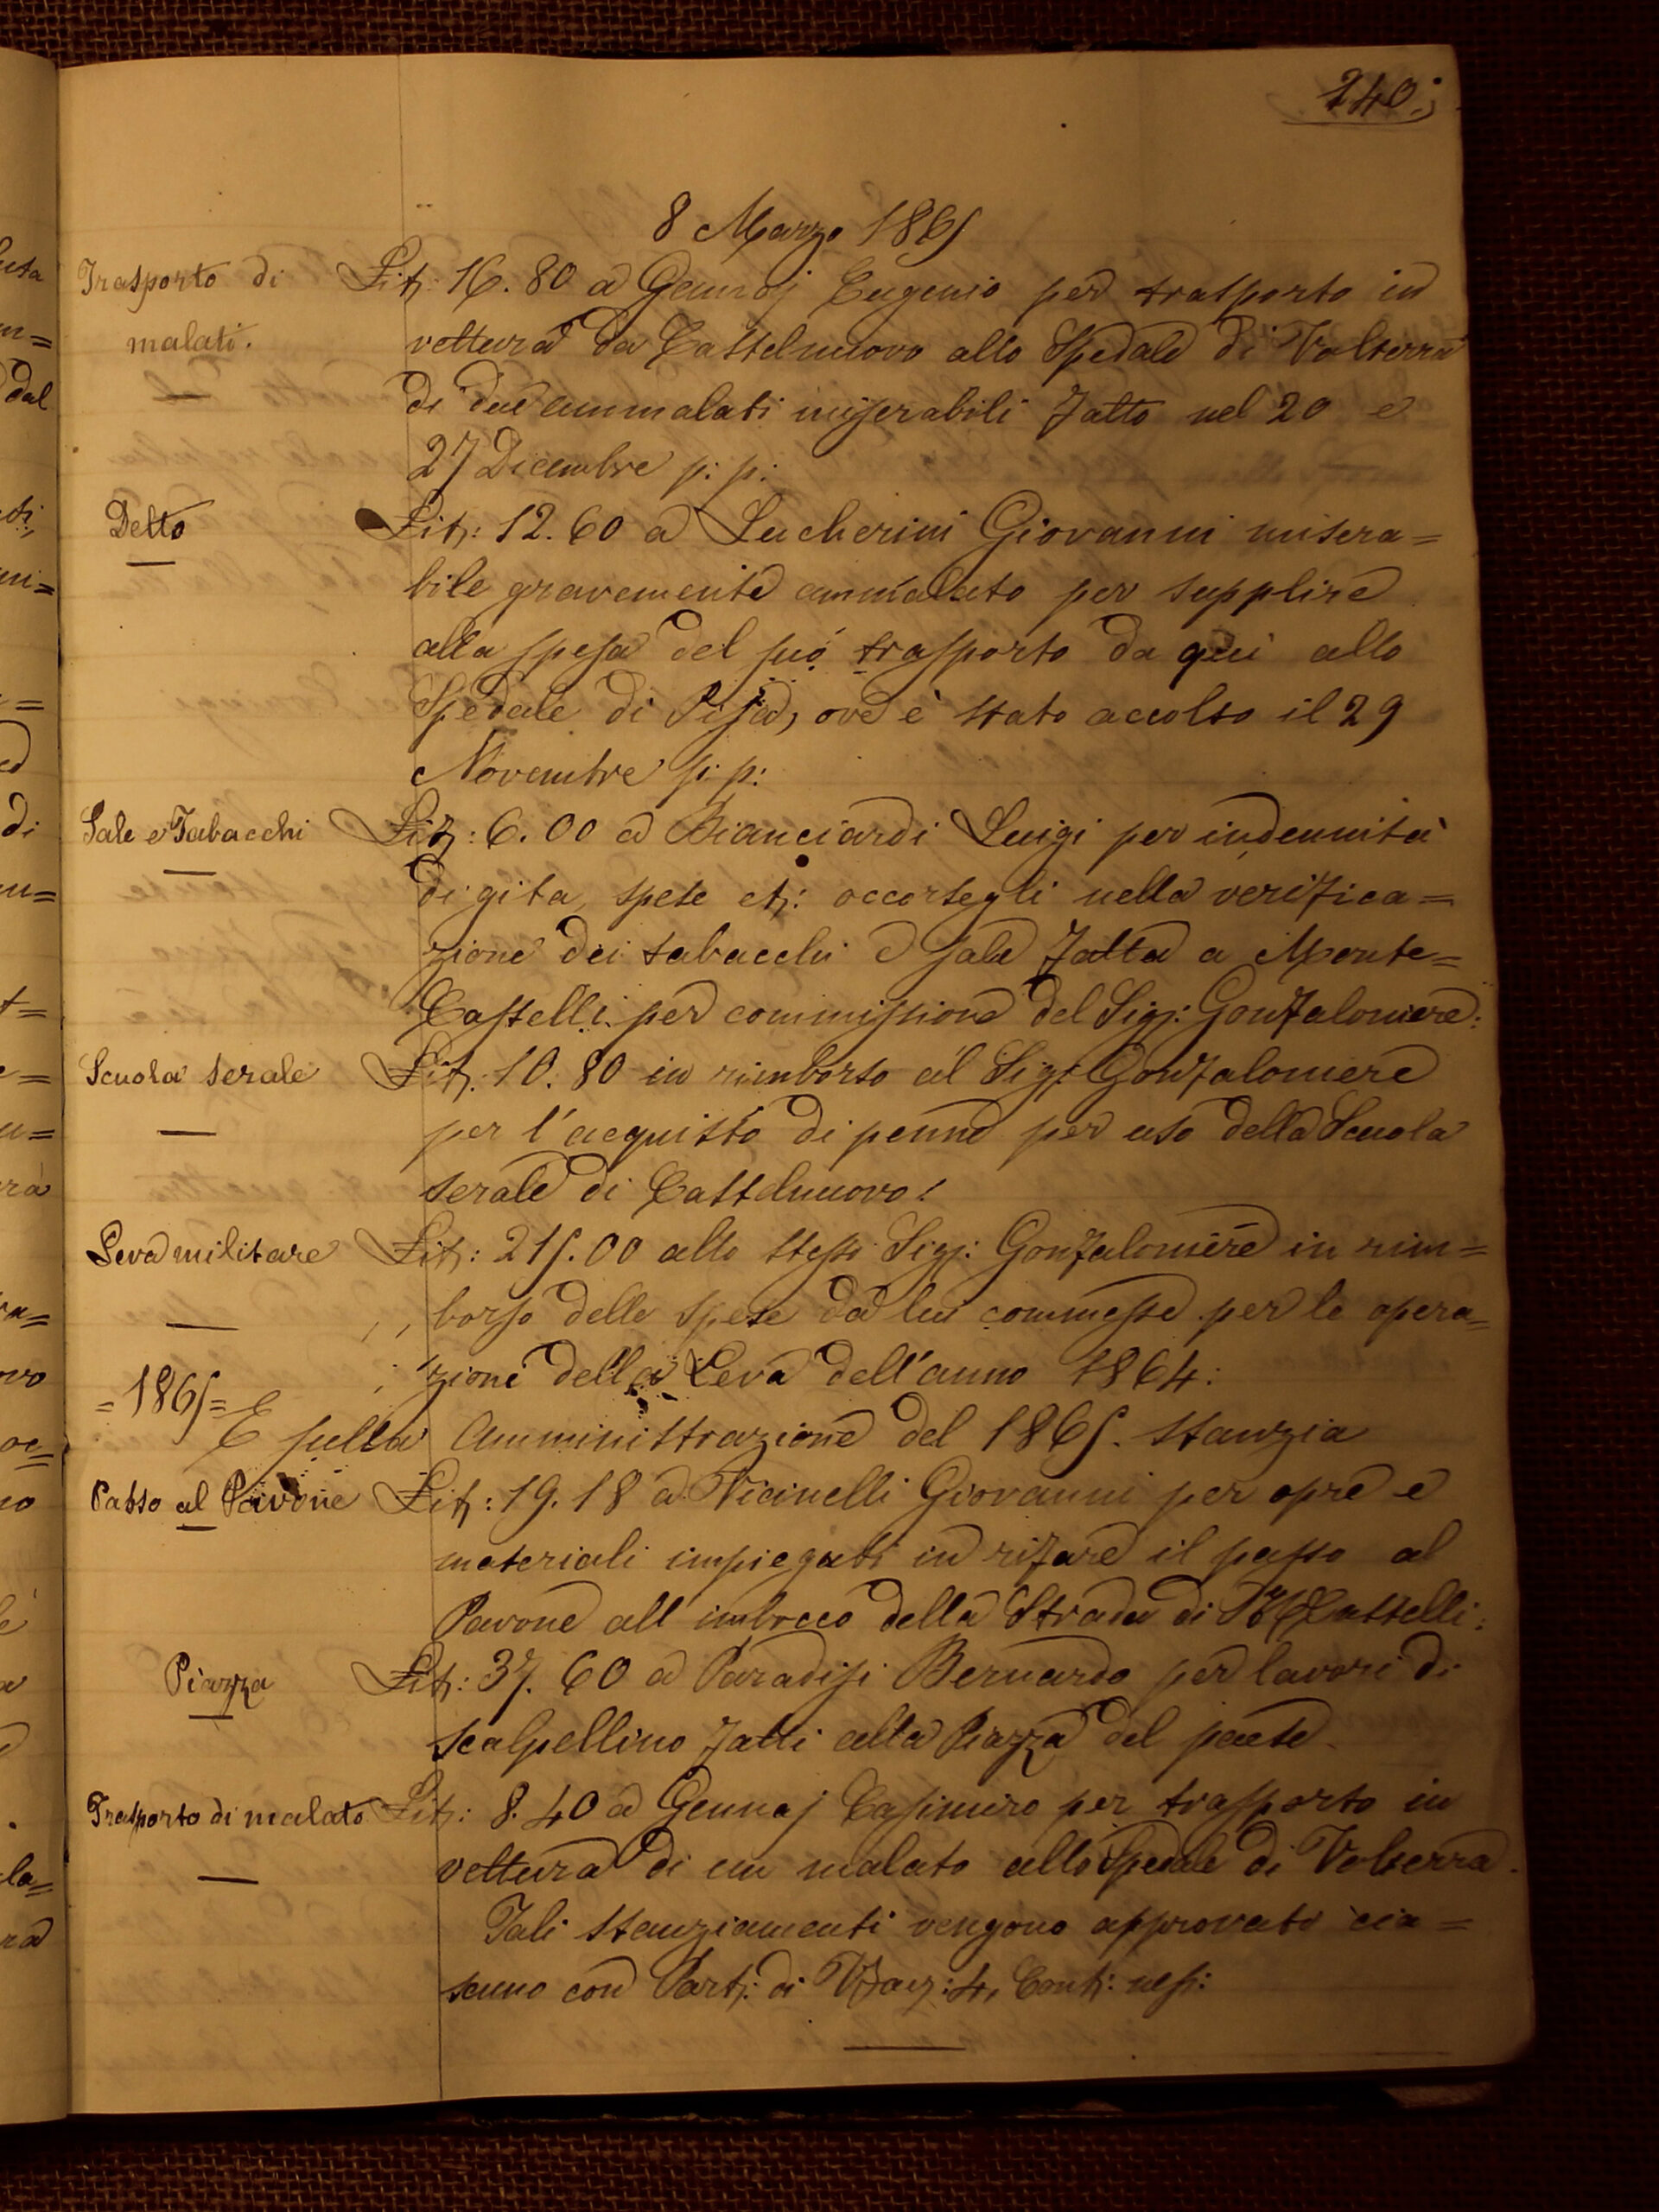 240:
8 Marzo 1865
Trasporto di malati.
Lit: 16.80 a Gennaj Eugenio per trasporto in
vettura da Castelnuovo allo Spedale di Volterra
di due ammalati miserabili fatto nel 20 e
27 Dicembre p: p:
Detto
Lit: 12.60 a Lucherini Giovanni misera=
bile gravemente ammalato per supplire
alla spesa del suo trasporto da quì allo
Spedale di Pisa, ove è stato accolto il 29
Novembre p: p:
Sale e Tabacchi
Lit: 6.00 a Bianciardi Luigi per indennità
di gita, spese et: occorsegli nella verifica=
zione dei tabacchi e sale fatta a Monte=
Castelli per commissione del Sig: Gonfaloniere:
Scuola serale
Lit: 10.80 in rimborso al Sig: Gonfaloniere
per l'acquisto di penne per uso della Scuola
serale di Castelnuovo:
Leva militare
Lit: 215.00 allo stesso Sig: Gonfaloniere in rim=
borso delle spese da lui commesse per le opera=
zioni della Leva dell'anno 1864:
=1865=
E sulla Amministrazione del 1865. stanzia
Passo al Pavone
Lit: 19.18 a Vicinelli Giovanni per opre e
materiali impiegati in rifare il passo al
Pavone all'imbocco della Strada di M Castelli:
Piazza
Lit: 37.60 a Paradisi Bernardo per lavori di
scalpellino fatti alla Piazza del paese.
Trasporto di malato
Lit: 8.40 a Gennaj Casimiro per trasporto in
vettura di un malato allo Spedale di Volterra.
Tali stanziamenti vengono approvati cia=
scuno con Part: di Vfav: 4, Cont: nes: